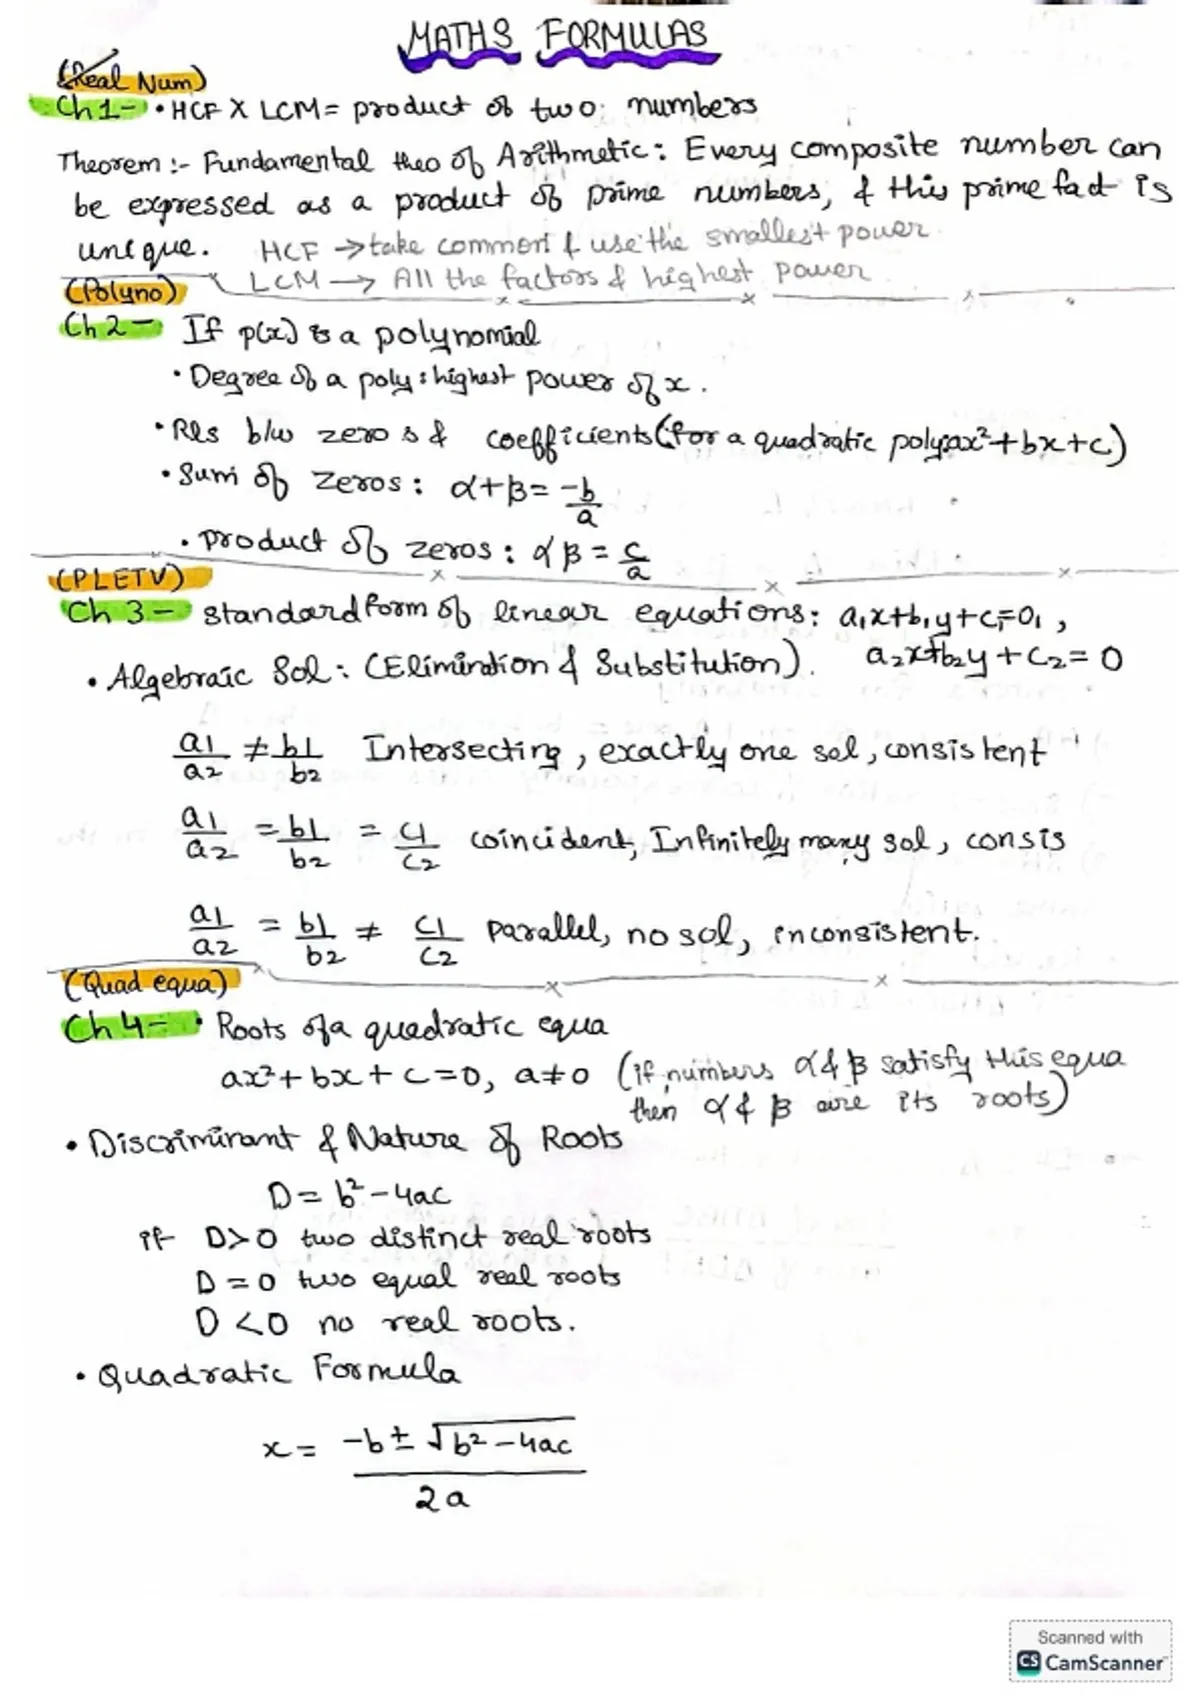 MATHS FORMULAS
(Real Num)
Ch 1- • HCF X LCM = product of two numbers
Theorem :- Fundamental theo of Arithmetic: Every composite number can
be expressed as a product of prime numbers, & this prime fact is
unique. HCF → take common & use the smallest power.
LCM → All the factors & highest power
(Polyno)
Ch 2 - If p(x) is a polynomial
• Degree of a poly: highest power of x.
• Rls b/w zeros & coefficients (for a quadratic poly: ax²+bx+c)
• Sum of zeros: α+β = -b/a
• product of zeros: αβ = c/a
(PLETV)
Ch 3 - standard form of linear equations: a₁x+b₁y+c₁=0,
a₂x+b₂y+c₂=0
• Algebraic Sol: (Elimination & Substitution).
a1/a2 ≠ b1/b2 Intersecting, exactly one sol, consistent
a1/a2 = b1/b2 = c1/c2 coincident, Infinitely many sol, consis
a1/a2 = b1/b2 ≠ c1/c2 parallel, no sol, inconsistent.
(Quad equa)
Ch 4 - • Roots of a quadratic equa
ax²+bx+c=0, a≠0 (if numbers α & β satisfy this equa
then α & β are its roots)
• Discriminant & Nature of Roots
D = b²-4ac
if D>0 two distinct real roots
D=0 two equal real roots
D<0 no real roots.
• Quadratic Formula
x = -b ± √b²-4ac
2a
Scanned with
CS CamScanner